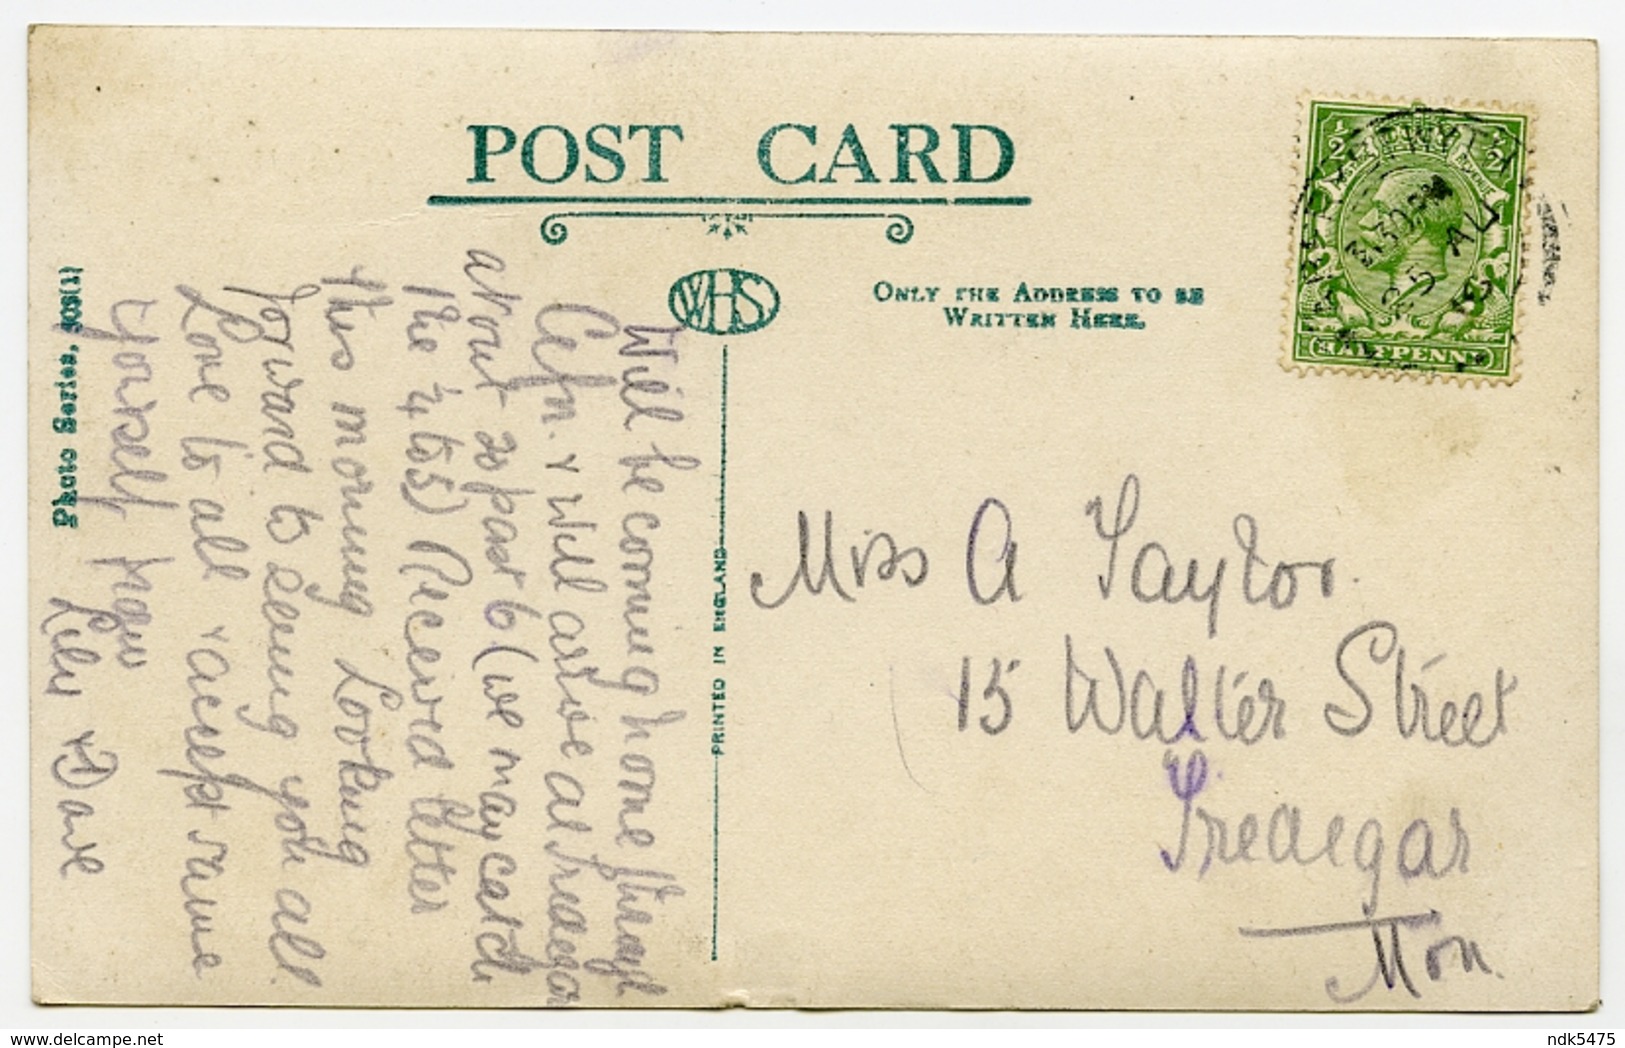 POST CARD
WHS
ONLY THE ADDRESS TO BE
WRITTEN HERE.
PRINTED IN ENGLAND
Photo Series, 303(1)
HALFPENNY
3.30 PM
25 AU
Will be coming home through
Cefn. & Will arrive at Tredegar
about 20 past 6 (we may catch
the ¼ to 5) Received letter
this morning Looking
forward to seeing you all.
Love to all & accept same
yourself from
Lily & Dave
Miss A Taylor.
15 Walter Street
Tredegar
Mon.
ndk5475